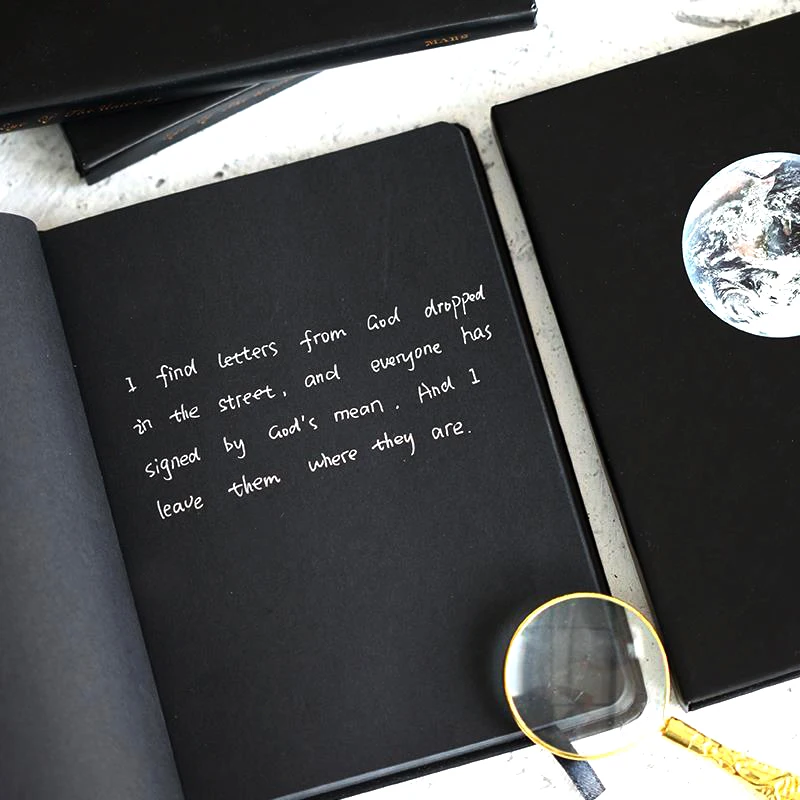 MARS
I find letters from God dropped
in the street, and everyone has
signed by God's mean. And I
leave them where they are.